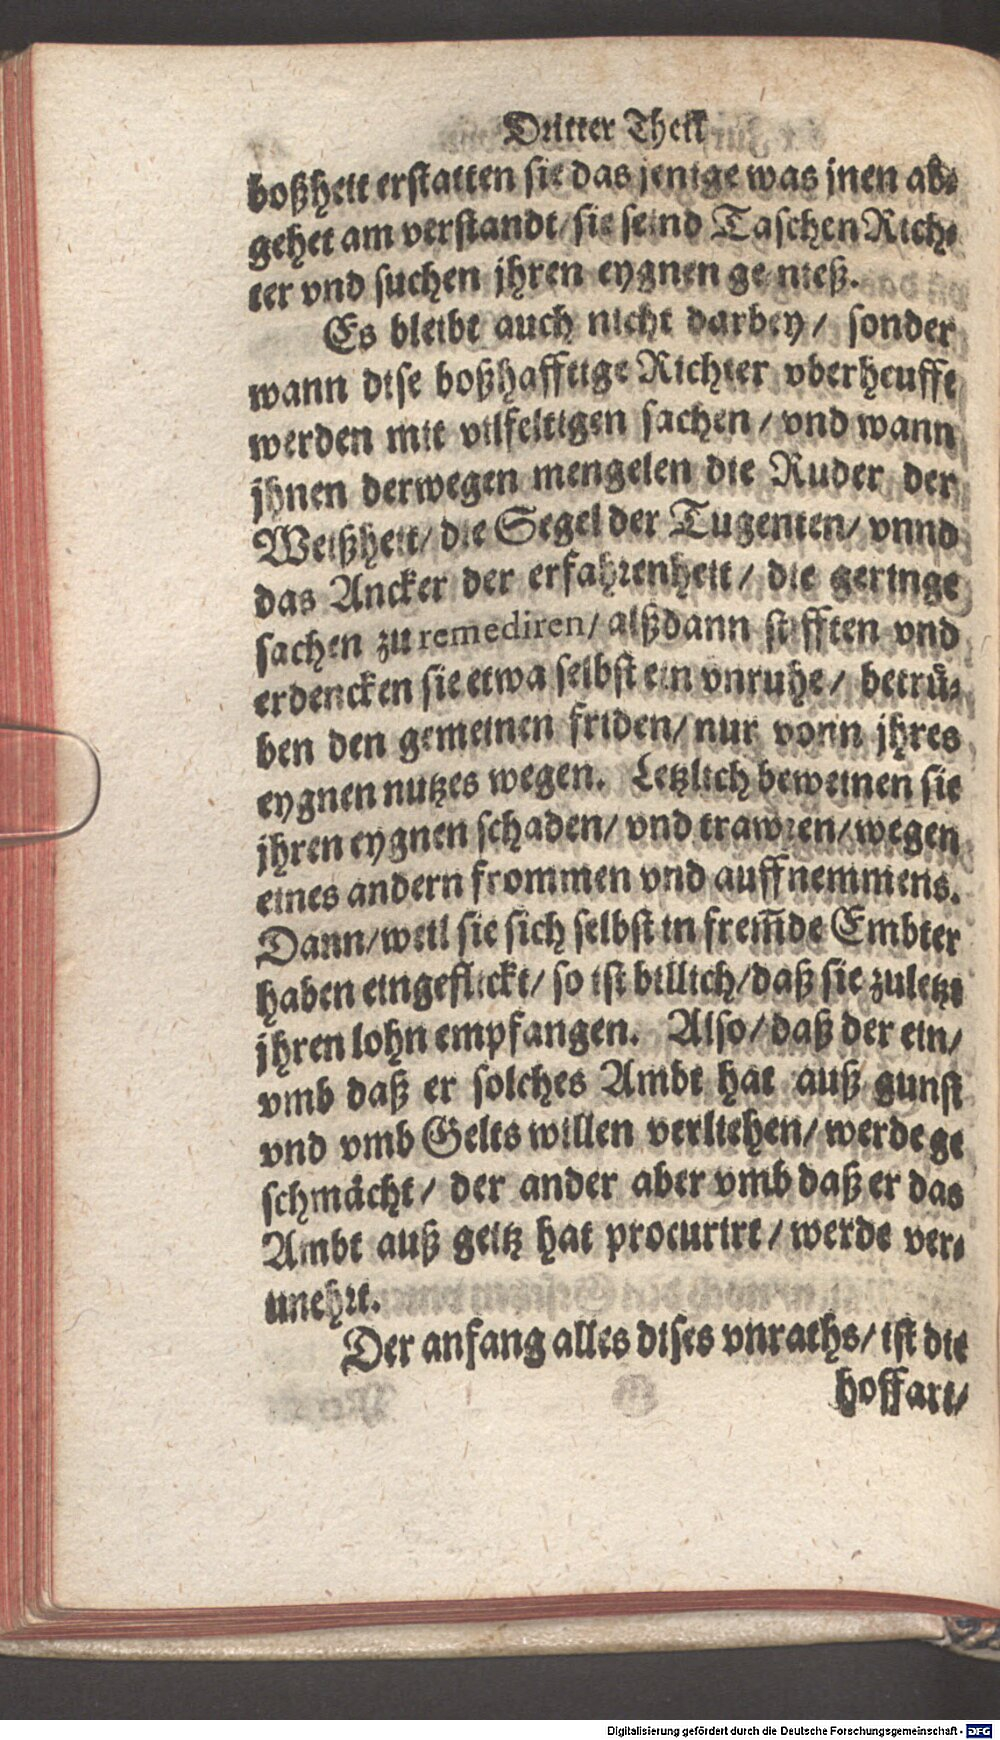 Dritter Theil
boßheit erstatten sie das jenige was jnen ab-
gehet am verstandt/ sie seind Taschen Rich-
ter vnd suchen jhren eygnen genieß.
Es bleibt auch nicht darbey/ sonder
wann dise boßhafftige Richter vberheufft
werden mit vilfeltigen sachen/ vnd wann
jhnen derwegen mengelen die Ruder der
Weißheit/ die Segel der Tugenten/ vnnd
das Ancker der erfahrenheit/ die geringe
sachen zu remediren/ alßdann stifften vnd
erdencken sie etwa selbst ein vnruhe/ betrü-
ben den gemeinen friden/ nur vonn jhres
eygnen nutzes wegen. Letzlich beweinen sie
jhren eygnen schaden/ vnd trawren/ wegen
eines andern frommen vnd auffnemmens.
Dann/ weil sie sich selbst in frem̃de Embter
haben eingeflickt/ so ist billich/ daß sie zuletzt
jhren lohn empfangen. Also/ daß der ein/
vmb daß er solches Ambt hat auß gunst
vnd vmb Gelts willen verliehen/ werde ge
schmächt/ der ander aber vmb daß er das
Ambt auß geitz hat procurirt/ werde ver-
unehrt.
Der anfang alles dises vnraths/ ist die
hoffart/
Digitalisierung gefördert durch die Deutsche Forschungsgemeinschaft - DFG